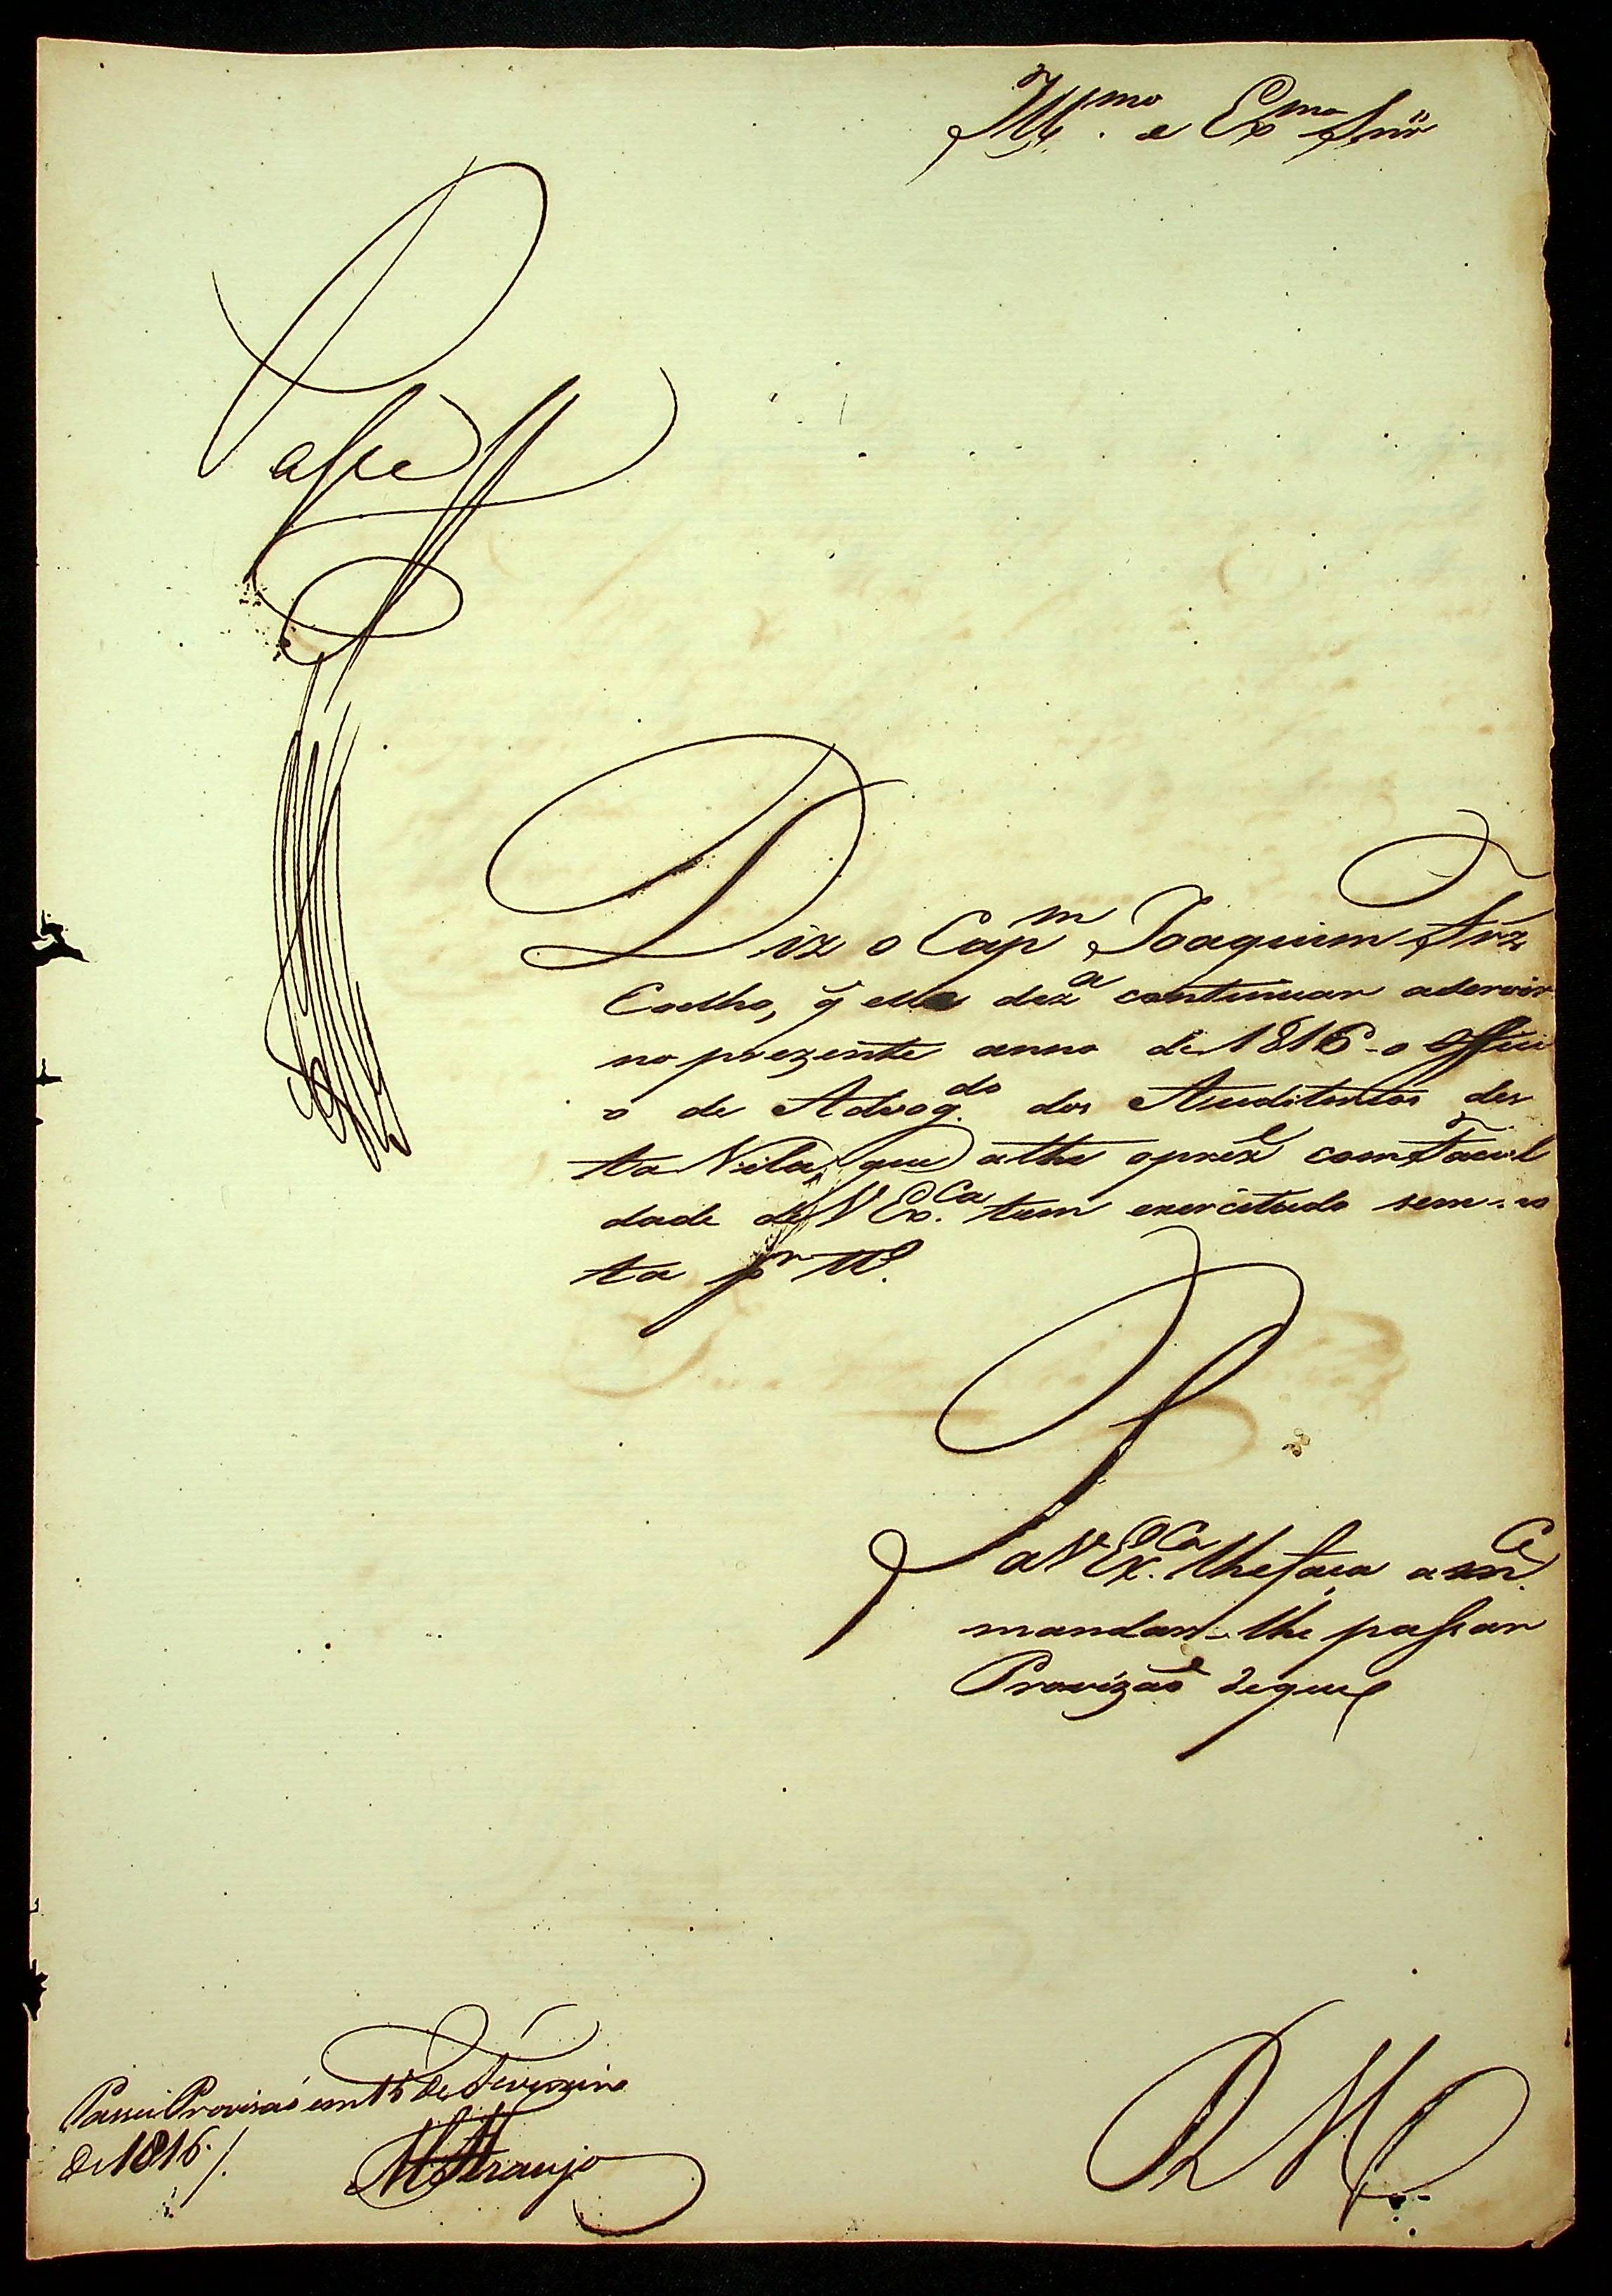 Illmo. e Exmo Snr
Passe
Diz o Capm Joaquim Frz
Coelho, q̃ elle deza continuar aservir
no prezente anno de 1816 - o offici
o de Advogdo. dos Auditorios des
ta Vila, que athe opreze com facul
dade de V Exca. tem exercitado sem no
ta pr. tto.
P
a V Exca. lhe faça a mce.
mandar-lhe passar
Provizaõ de que
R M
Passei Provisaõ em 15 de Fevereiro
de 1816./.
Araujo